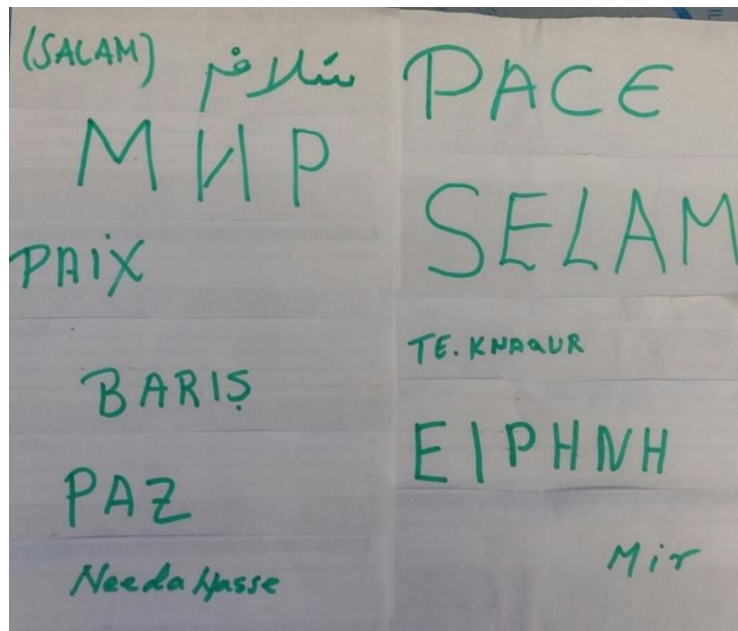 (SALAM) سلام
МИР
PAIX
BARIŞ
PAZ
PACE
SELAM
TE. KNAQUR
EIPHNH
Mir